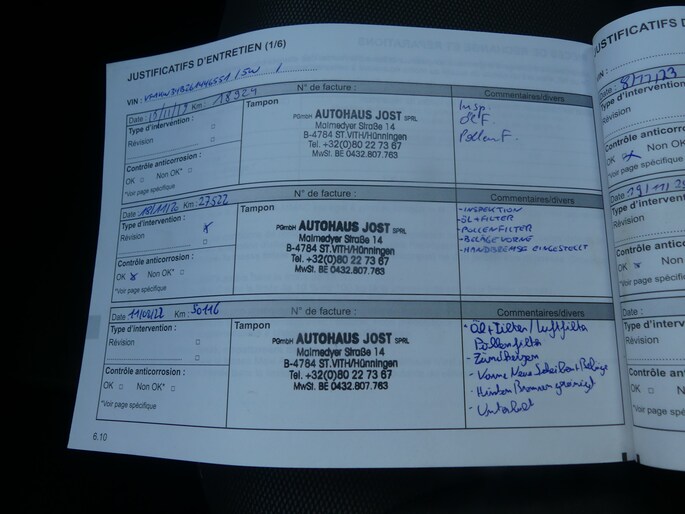 JUSTIFICATIFS D'ENTRETIEN (1/6)
VIN :
Date : Km : 18924
N° de facture :
Commentaires/divers
Type d'intervention :
Révision
Contrôle anticorrosion :
OK Non OK*
*Voir page spécifique
Tampon
PGmbH AUTOHAUS JOST SPRL
Malmedyer Straße 14
B-4784 ST.VITH/Hünningen
Tel. +32(0)80 22 73 67
MwSt. BE 0432.807.763
Insp.
Öl F.
Pollen F.
Date : Km : 27522
N° de facture :
Commentaires/divers
Type d'intervention :
Révision
Contrôle anticorrosion :
OK x Non OK*
*Voir page spécifique
Tampon
PGmbH AUTOHAUS JOST SPRL
Malmedyer Straße 14
B-4784 ST.VITH/Hünningen
Tel. +32(0)80 22 73 67
MwSt. BE 0432.807.763
-INSPEKTION
-ÖL+FILTER
-POLLENFILTER
-BELÄGE VORNE
-HANDBREMSE EINGESTELLT
Date Km : 50116
N° de facture :
Commentaires/divers
Type d'intervention :
Révision
Contrôle anticorrosion :
OK Non OK*
*Voir page spécifique
Tampon
PGmbH AUTOHAUS JOST SPRL
Malmedyer Straße 14
B-4784 ST.VITH/Hünningen
Tel. +32(0)80 22 73 67
MwSt. BE 0432.807.763
Öl+Filter/Luftfilter
Pollenfilter
- Zündkerzen
- Vorne Neue Scheiben+Beläge
- Hinten Bremsen gereinigt
6.10
JUSTIFICATIFS D
VIN :
Date :
Type d'intervention
Révision
Contrôle anticorros
OK
*Voir page spécifique
Date :
Type d'interven
Révision
Contrôle antico
OK
*Voir page spécifiq
Date :
Type d'interv
Révision
Contrôle anti
OK
*Voir page spéc